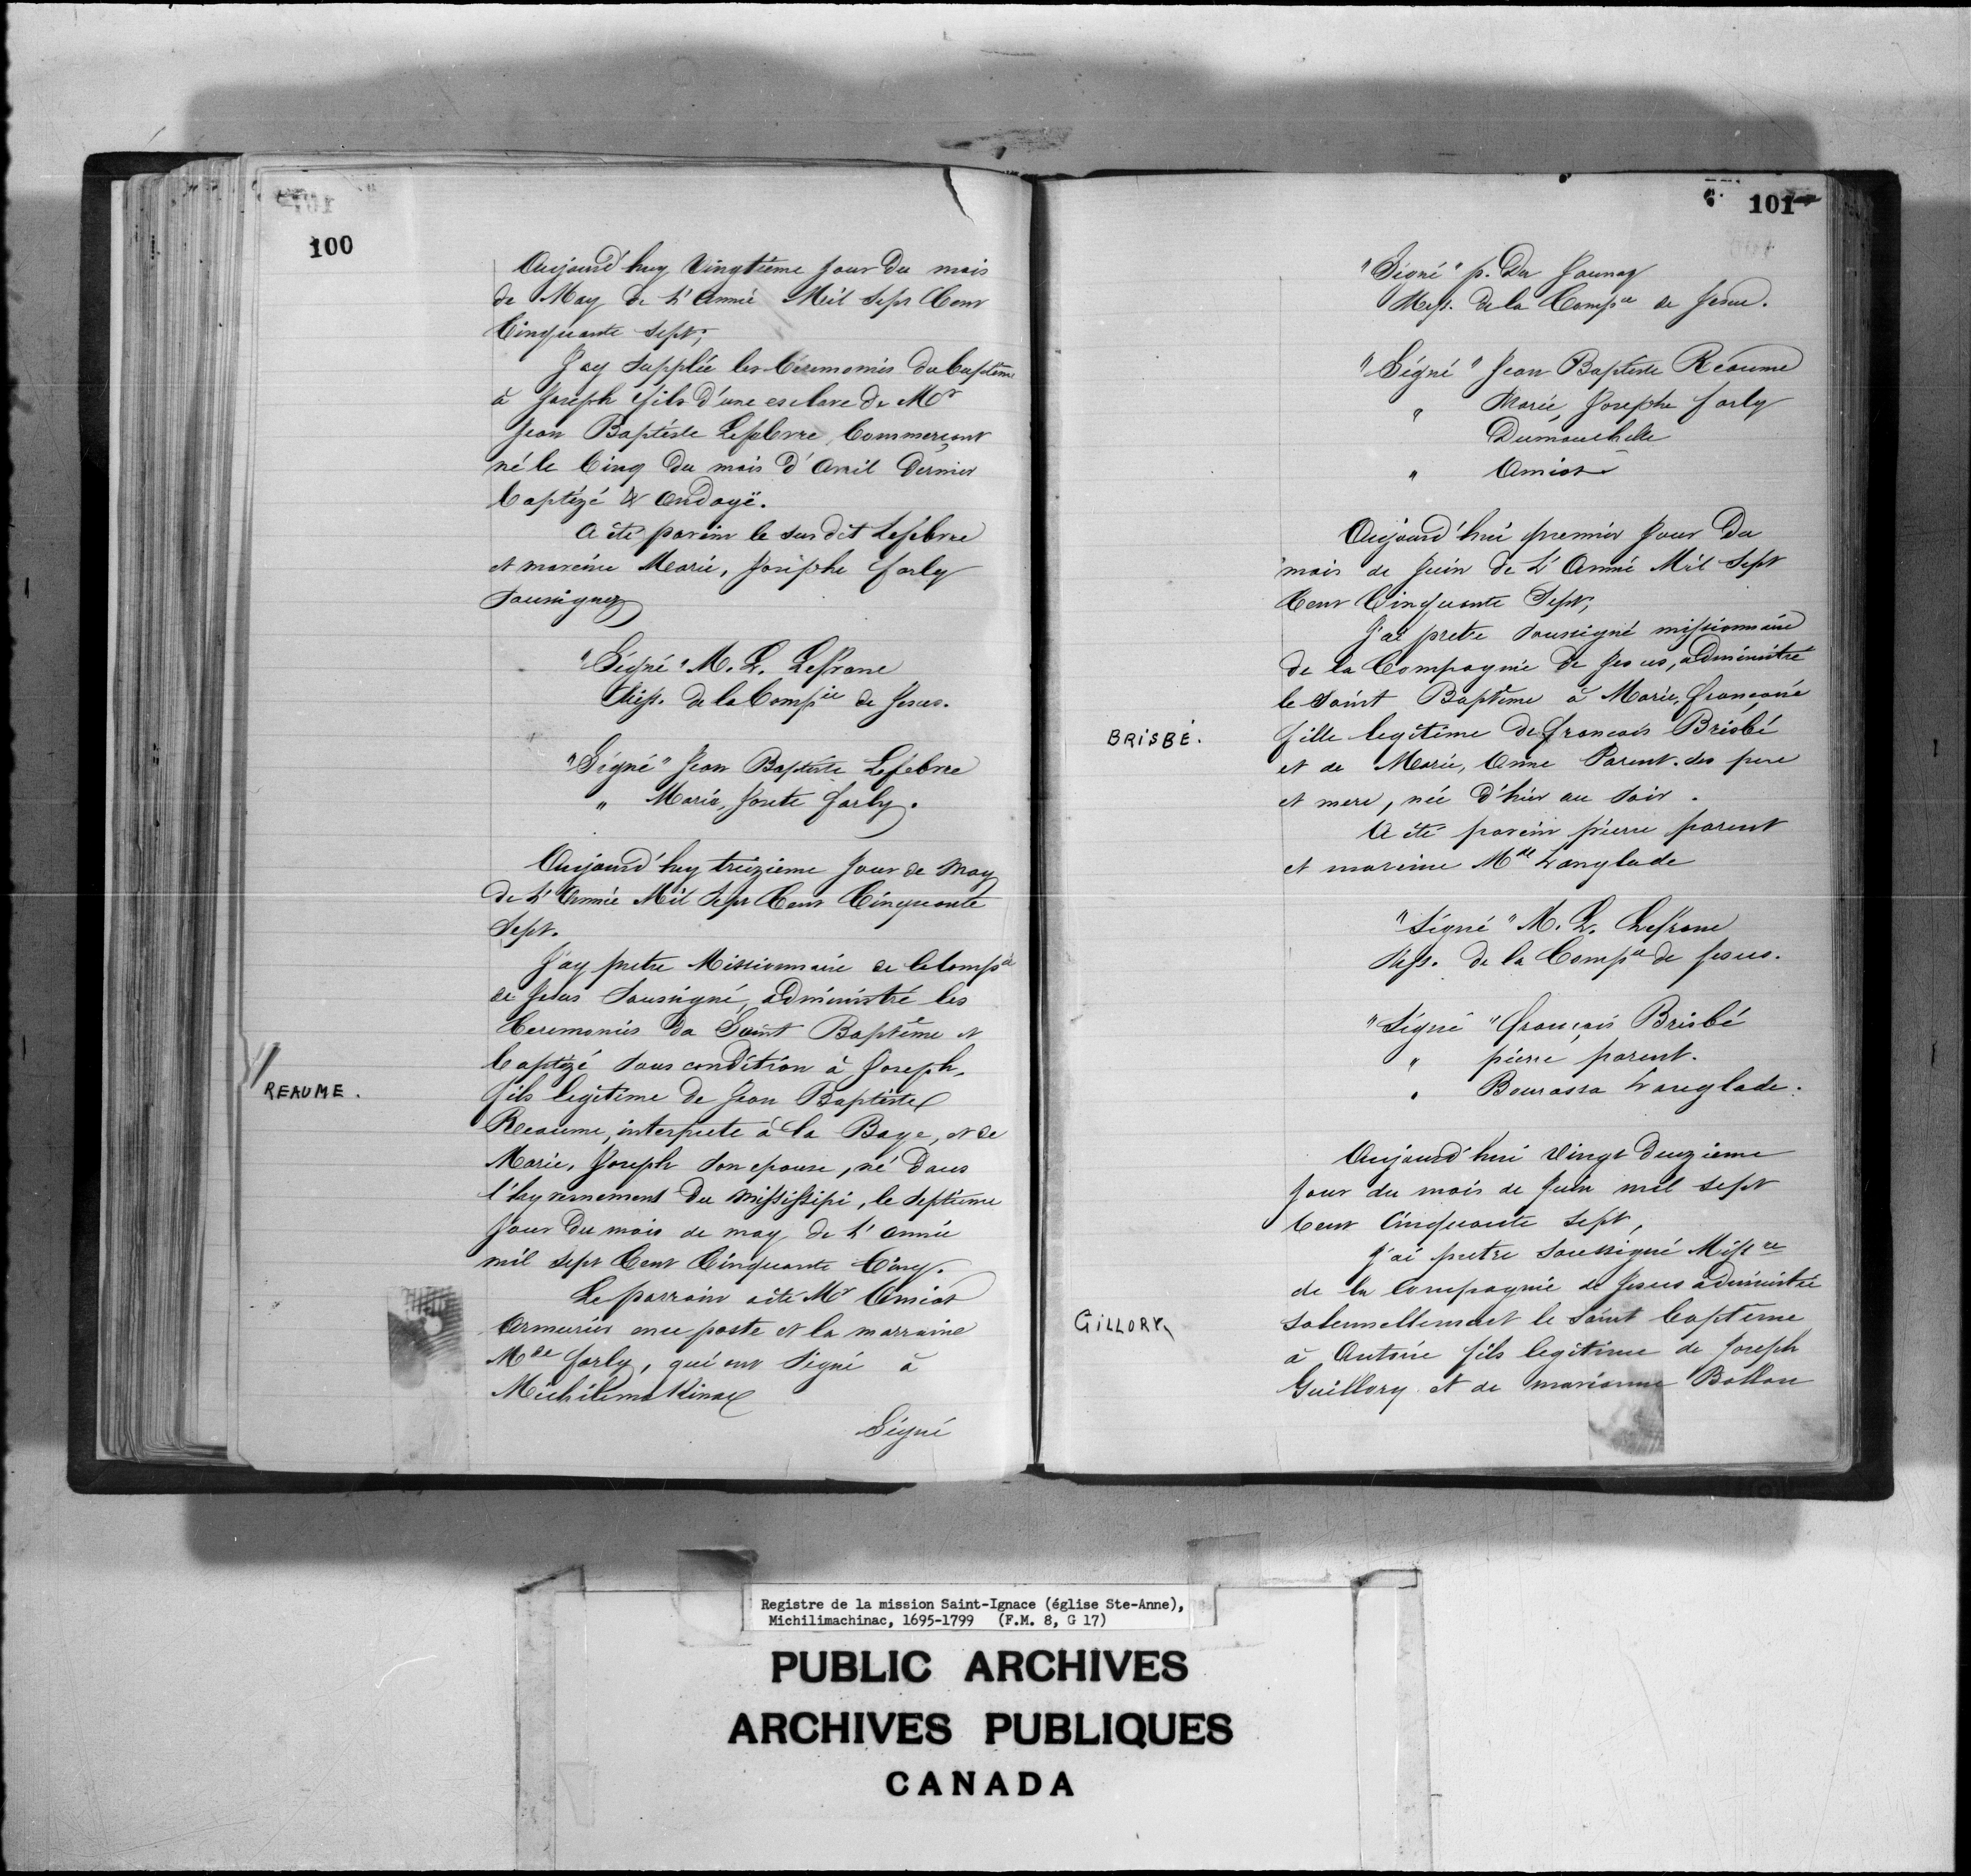 100
Aujourd'huy Vingtième jour du mois
de May de L'Année Mil Sept Cent
Cinquante Sept,
J'ay Supplée les Cérémonies du baptême
à Joseph fils d'une esclave de Mr
Jean Baptiste Lefebvre Commerçant
né le Cinq du mois d'Avril dernier
baptizé & Ondoyé.
A été parein le sus dit Lefebvre
et mareine Marie, Josèphe farly
Soussignez
"Signé" M. L. Lefranc
Miss. de la Compie de Jesus.
"Signé" Jean Baptiste Lefebvre
" Marie, Josete farly.
Aujourd'huy treizieme jour de May
de L'Année Mil Sept Cent Cinquante
Sept.
J'ay pretre Missionnaire de la Compie
de Jesus Soussigné, administré les
Ceremonies du Saint Baptême et
baptizé sous condition à Joseph,
REAUME.
fils legitime de Jean Baptiste
Reaume, interprete à la Baye, et de
Marie, Joseph son epouse, né dans
l'hyvernement du Mississipi, le Septieme
jour du mois de may de L'année
mil sept Cent Cinquante Cinq.
Le parrain a été Mr Amiot
Armurier en ce poste et la marraine
Mde farly, qui ont Signé à
Michilimakinac
Signé
101
"Signé" p. Du Jaunay
Miss. de la Compie de Jesus.
"Signé" Jean Baptiste Réaume
" Marie, Josephe farly
Dumouchelle
" Amiot
Aujourd'hui premier jour du
mois de Juin de L'Année Mil Sept
Cent Cinquante Sept,
J'ai pretre Soussigné missionnaire
de la Compagnie de Jesus, administré
le Saint Baptême à Marie, Françoise
BRISBÉ.
fille legitime de françois Brisbé
et de Marie, Anne Parent. ses pere
et mere, née d'hier au soir.
A été parein pierre parent
et mareine Mde Langlade
"Signé" M. L. Lefranc
Miss. de la Compie de Jesus.
"Signé" françois Brisbé
" pierre parent.
" Bourassa Langlade.
Aujourd'hui Vingt deuzieme
jour du mois de Juin mil sept
Cent Cinquante Sept,
J'ai pretre soussigné Missre
de la Compagnie de Jesus administré
GILLORY
solennellement le Saint baptême
à Antoine fils legitime de Joseph
Guillory et de marianne Bollon
Registre de la mission Saint-Ignace (église Ste-Anne),
Michilimachinac, 1695-1799 (F.M. 8, G 17)
PUBLIC ARCHIVES
ARCHIVES PUBLIQUES
CANADA